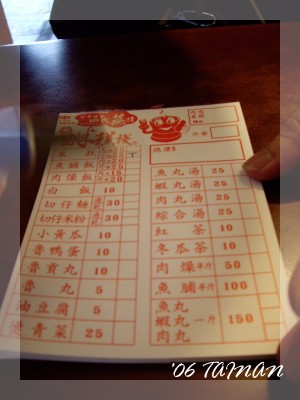 總價
米糕
魚脯飯
肉燥飯
白飯 10
切仔麵 30
切仔米粉 30
小黃瓜 10
魯鴨蛋 10
魯貢丸 10
魯丸 5
油豆腐 5
燙青菜 25
魚丸湯 25
蝦丸湯 25
肉丸湯 25
綜合湯 25
紅茶 10
冬瓜茶 10
肉燥半斤 50
魚脯半斤 100
魚丸
蝦丸一斤 150
肉丸
'06 TAINAN